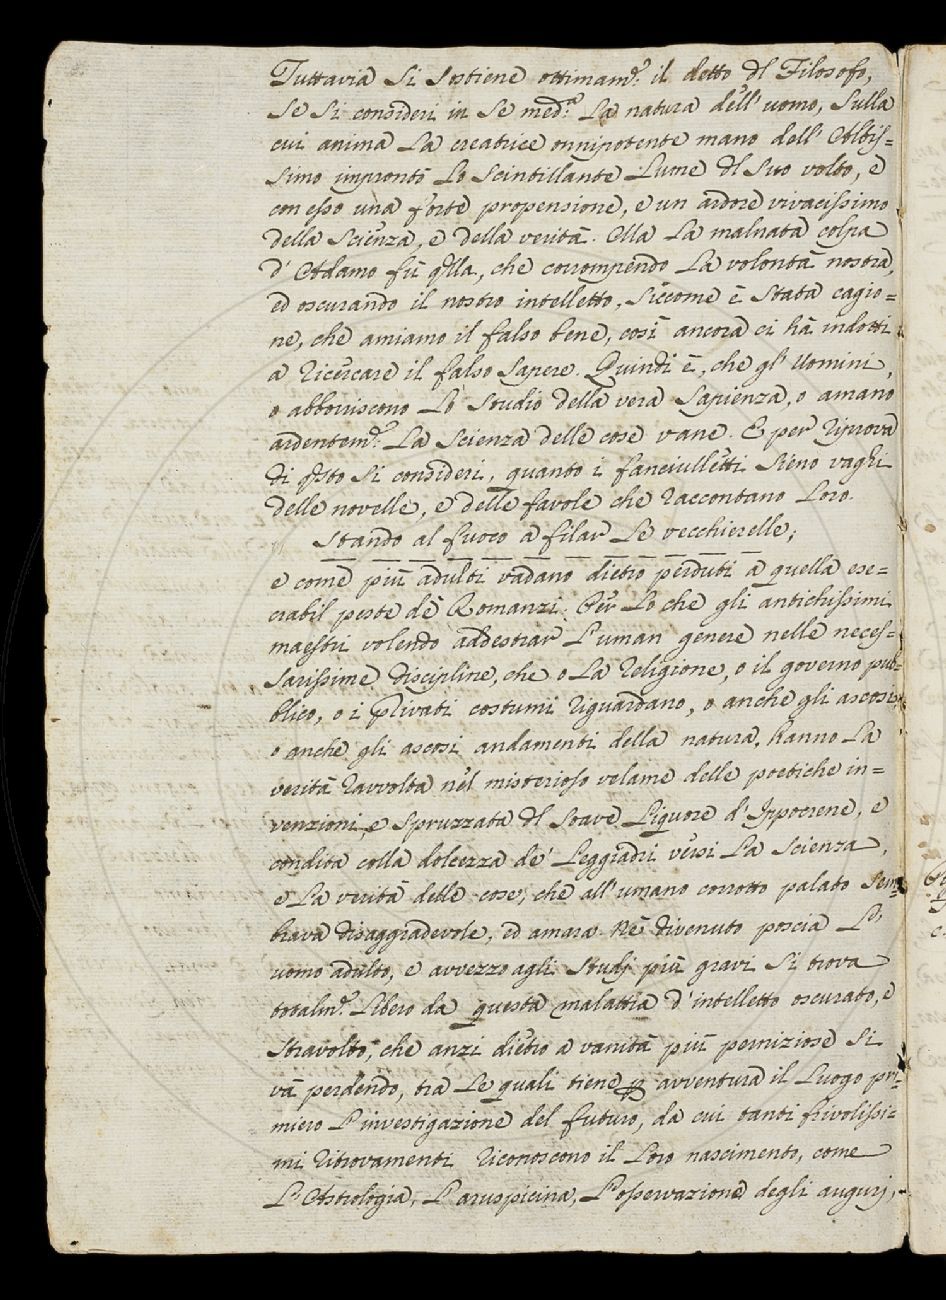 Tuttavia si sostiene ottimamᵉ. il detto dl Filosofo,
se si consideri in se medᵃ. la natura dell'uomo, sulla
cui anima la creatrice onnipotente mano dell'Altis=
simo improntò lo scintillante lume dl suo volto, e
con esso una forte propensione, e un ardore vivacissimo
della scienza, e della verità. Ma la malnata colpa
d'Adamo fù qlla, che corrompendo la volontà nostra,
ed oscurando il nostro intelletto, siccome è stata cagio=
ne, che amiamo il falso bene, così ancora ci hà indotti
a ricercare il falso sapere. Quindi è, che gl'Uomini,
o abborriscono lo studio della vera sapienza, o amano
ardentemᵉ. la scienza delle cose vane. E per riprova
di qsto si consideri, quanto i fanciulletti sieno vaghi
delle novelle, e delle favole che raccontano loro.
Stando al fuoco a filar le vecchierelle;
e come più adulti vadano dietro perduti a quella ese=
crabil peste de Romanzi. Per lo che gli antichissimi
maestri volendo addestrar l'uman genere nelle neces=
sarissime discipline, che o la religione, o il governo pub=
blico, o i privati costumi riguardano, o anche gli ascosi,
o anche gli ascosi andamenti della natura, hanno la
verità ravvolta nel misterioso velame delle poetiche in=
venzioni, e spruzzata dl soave liquore d'Ippocrene, e
condita colla dolcezza de' leggiadri versi la scienza,
e la verità delle cose, che all'umano corrotto palato sem=
brava disaggradevole, ed amara. Nè divenuto poscia l'
uomo adulto, e avvezzo agli studj più gravi si trova
totalmᵉ. libero da questa malattia d'intelletto oscurato, e
stravolto, che anzi dietro a vanità più perniziose si
và perdendo, tra le quali tiene p avventura il luogo pri=
miero l'investigazione del futuro, da cui tanti frivolissi=
mi ritrovamenti riconoscono il loro nascimento, come
l'Astrologia, l'aruspicina, l'osservazione degli augurj,